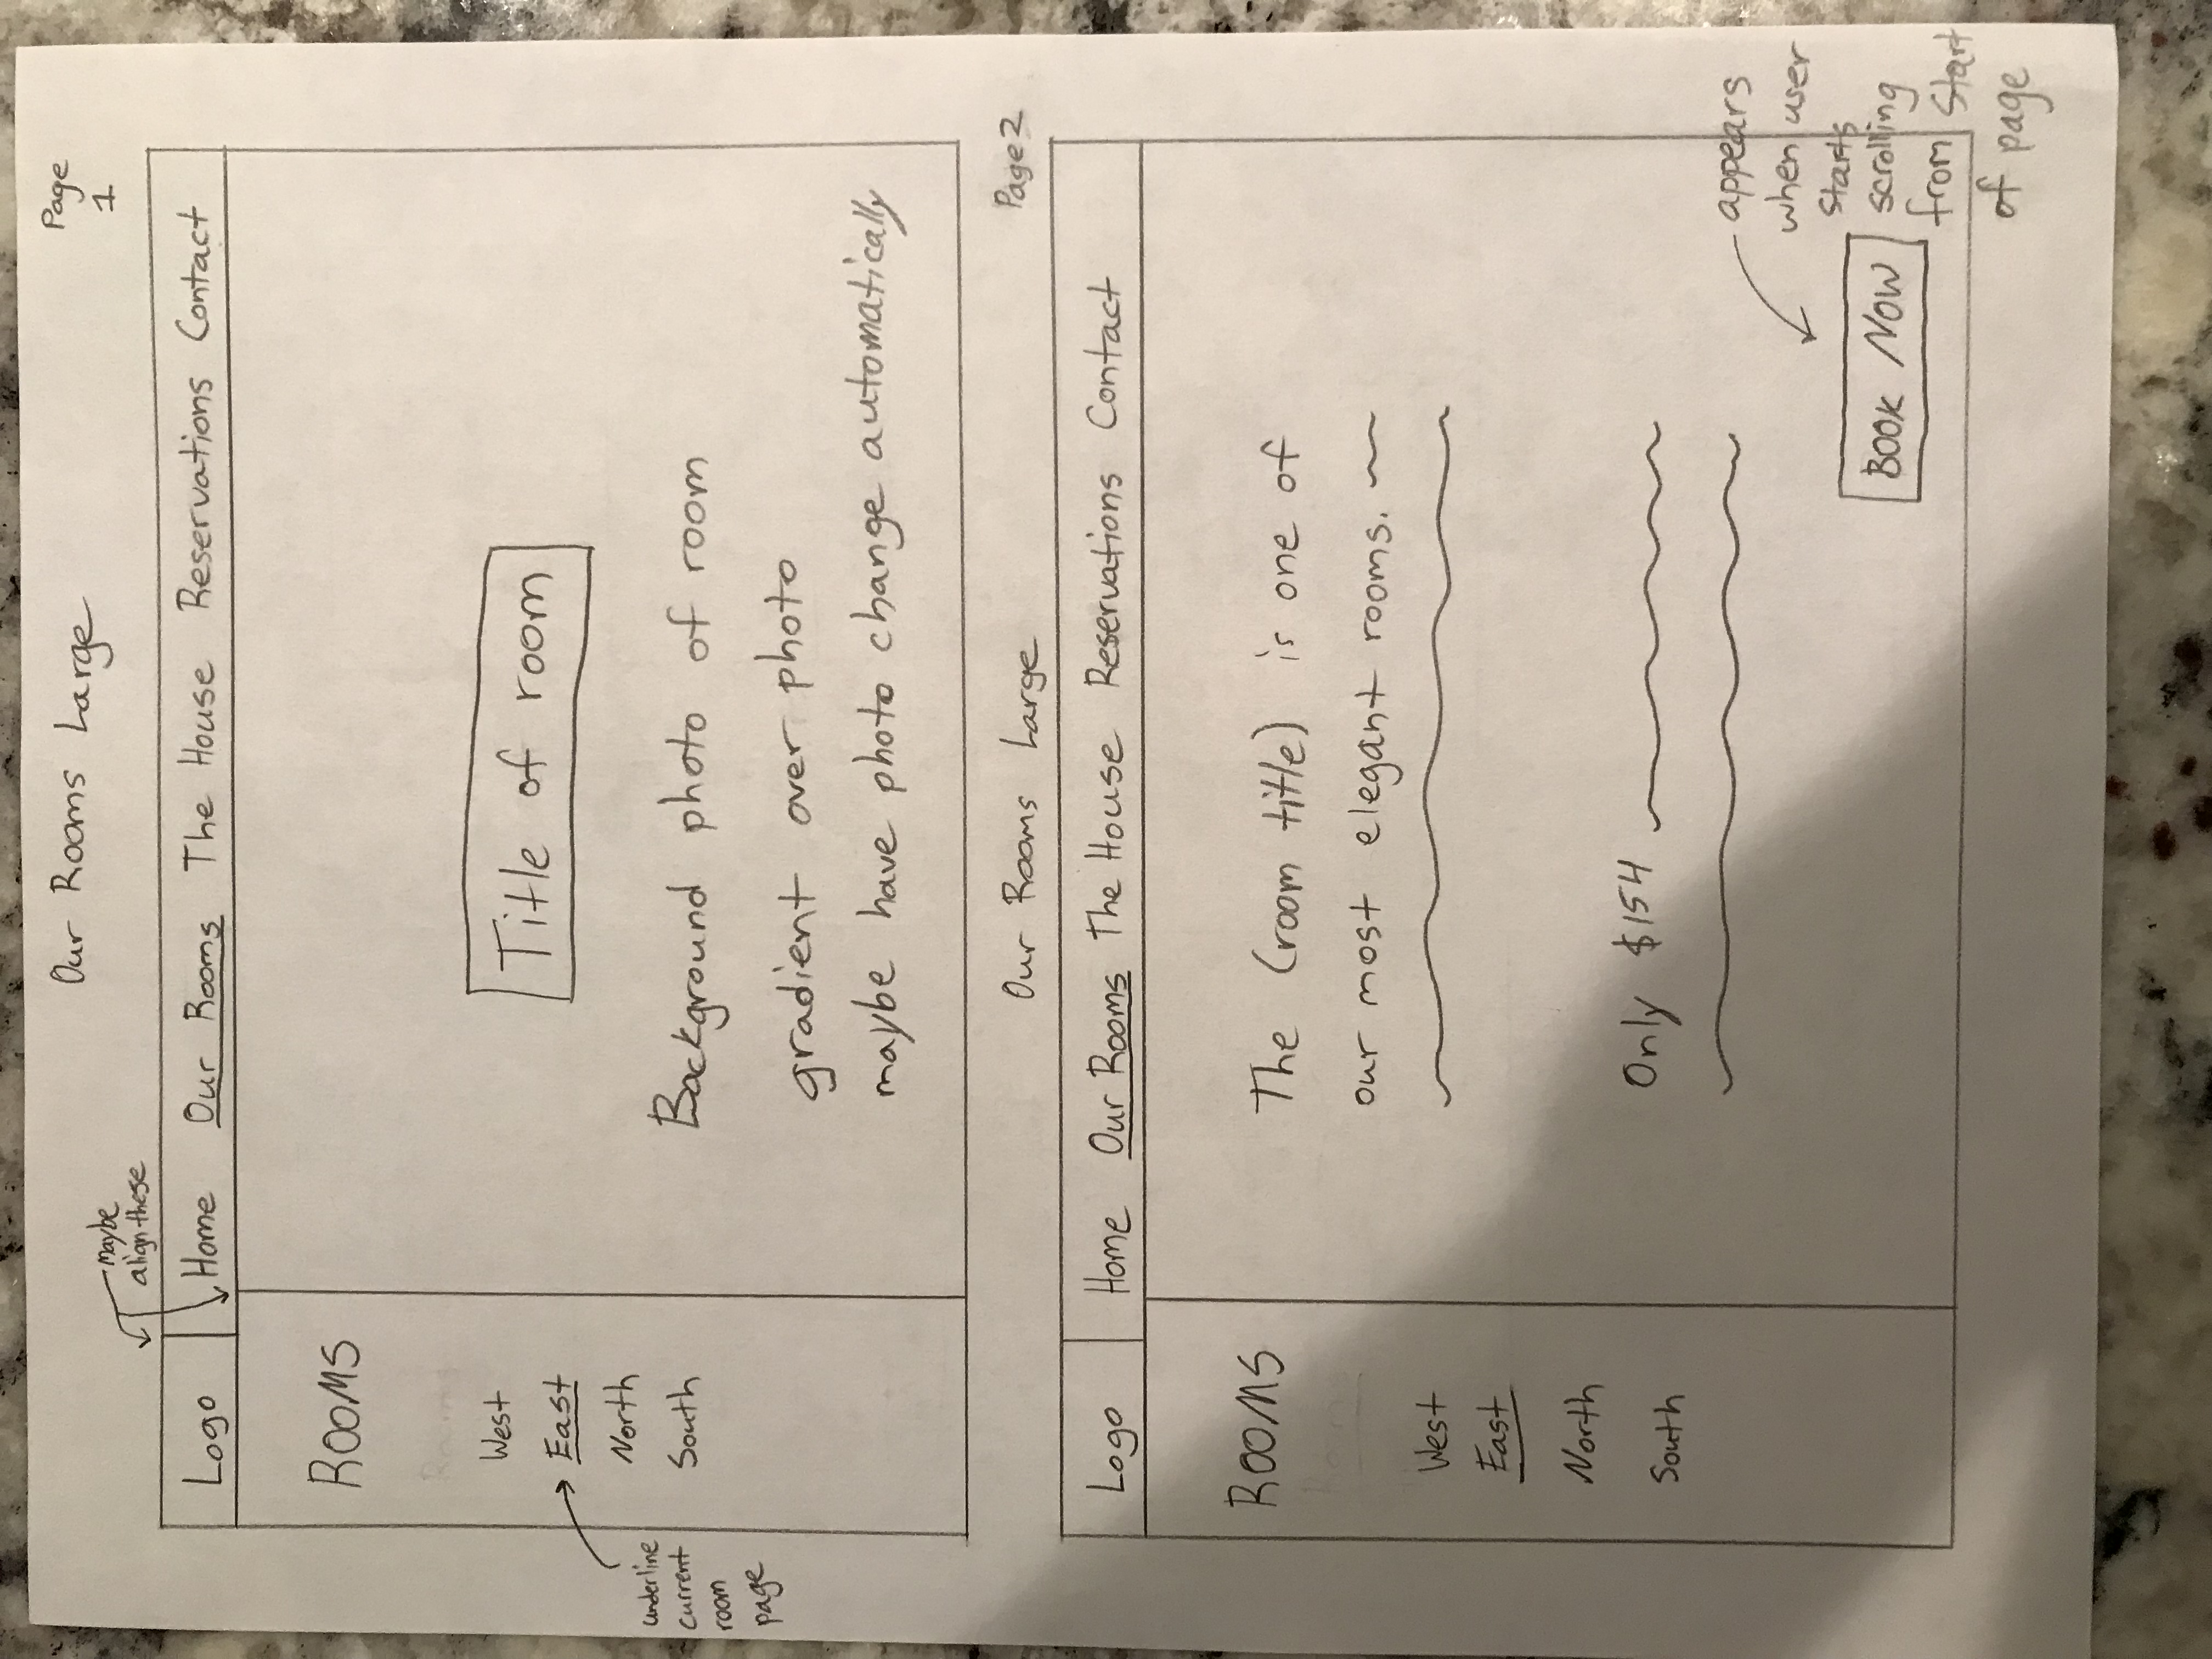 Our Rooms Large
Page
1
maybe
align these
Logo
Home Our Rooms The House Reservations Contact
ROOMS
Rooms
West
East
North
South
underline
current
room
page
Title of room
Background photo of room
gradient over photo
maybe have photo change automatically
Our Rooms Large
Page 2
Logo
Home Our Rooms The House Reservations Contact
ROOMS
Rooms
West
East
North
South
The (room title) is one of
our most elegant rooms.
Only $154
appears
when user
starts
scrolling
from start
of page
BOOK NOW